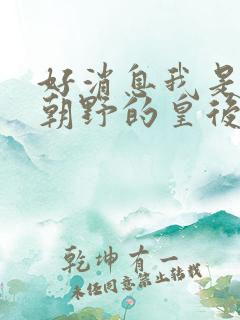 好消息我是
朝野的皇後
乾坤有一
未经同意禁止转载